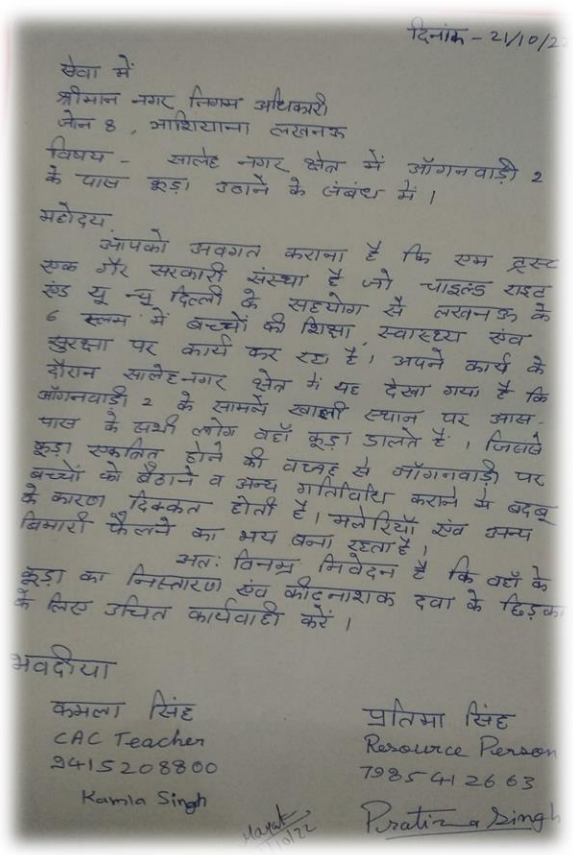 दिनांक - 21/10/22
सेवा में
श्रीमान नगर निगम अधिकारी
जोन 8, आशियाना लखनऊ
विषय - सालेह नगर क्षेत्र में आँगनवाड़ी 2
के पास कूड़ा उठाने के संबंध में।
महोदय,
आपको अवगत कराना है कि एम ट्रस्ट
एक गैर सरकारी संस्था है जो चाइल्ड राइट
एंड यू न्यू दिल्ली के सहयोग से लखनऊ के
6 स्लम में बच्चों की शिक्षा, स्वास्थ्य एंव
सुरक्षा पर कार्य कर रहा है। अपने कार्य के
दौरान सालेहनगर क्षेत्र में यह देखा गया है कि
आँगनवाड़ी 2 के सामने खाली स्थान पर आस-
पास के सभी लोग वहाँ कूड़ा डालते हैं। जिससे
कूड़ा एकत्रित होने की वजह से आँगनवाड़ी पर
बच्चों को बैठाने व अन्य गतिविधि कराने में बदबू
के कारण दिक्कत होती है। मलेरियाँ एंव अन्य
बिमारी फैलने का भय बना रहता है।
अतः विनम्र निवेदन है कि वहाँ के
कूड़ा का निस्तारण एंव कीटनाशक दवा के छिड़का
के लिए उचित कार्यवाही करें।
भवदीया
कमला सिंह
CAC Teacher
9415208800
Kamla Singh
प्रतिमा सिंह
Resource Person
7985412663
Pratima Singh